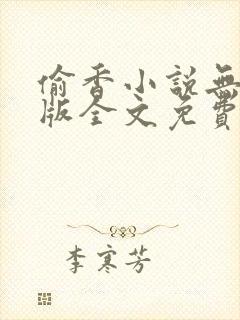 偷香小說無
版全文免費
李寒芳